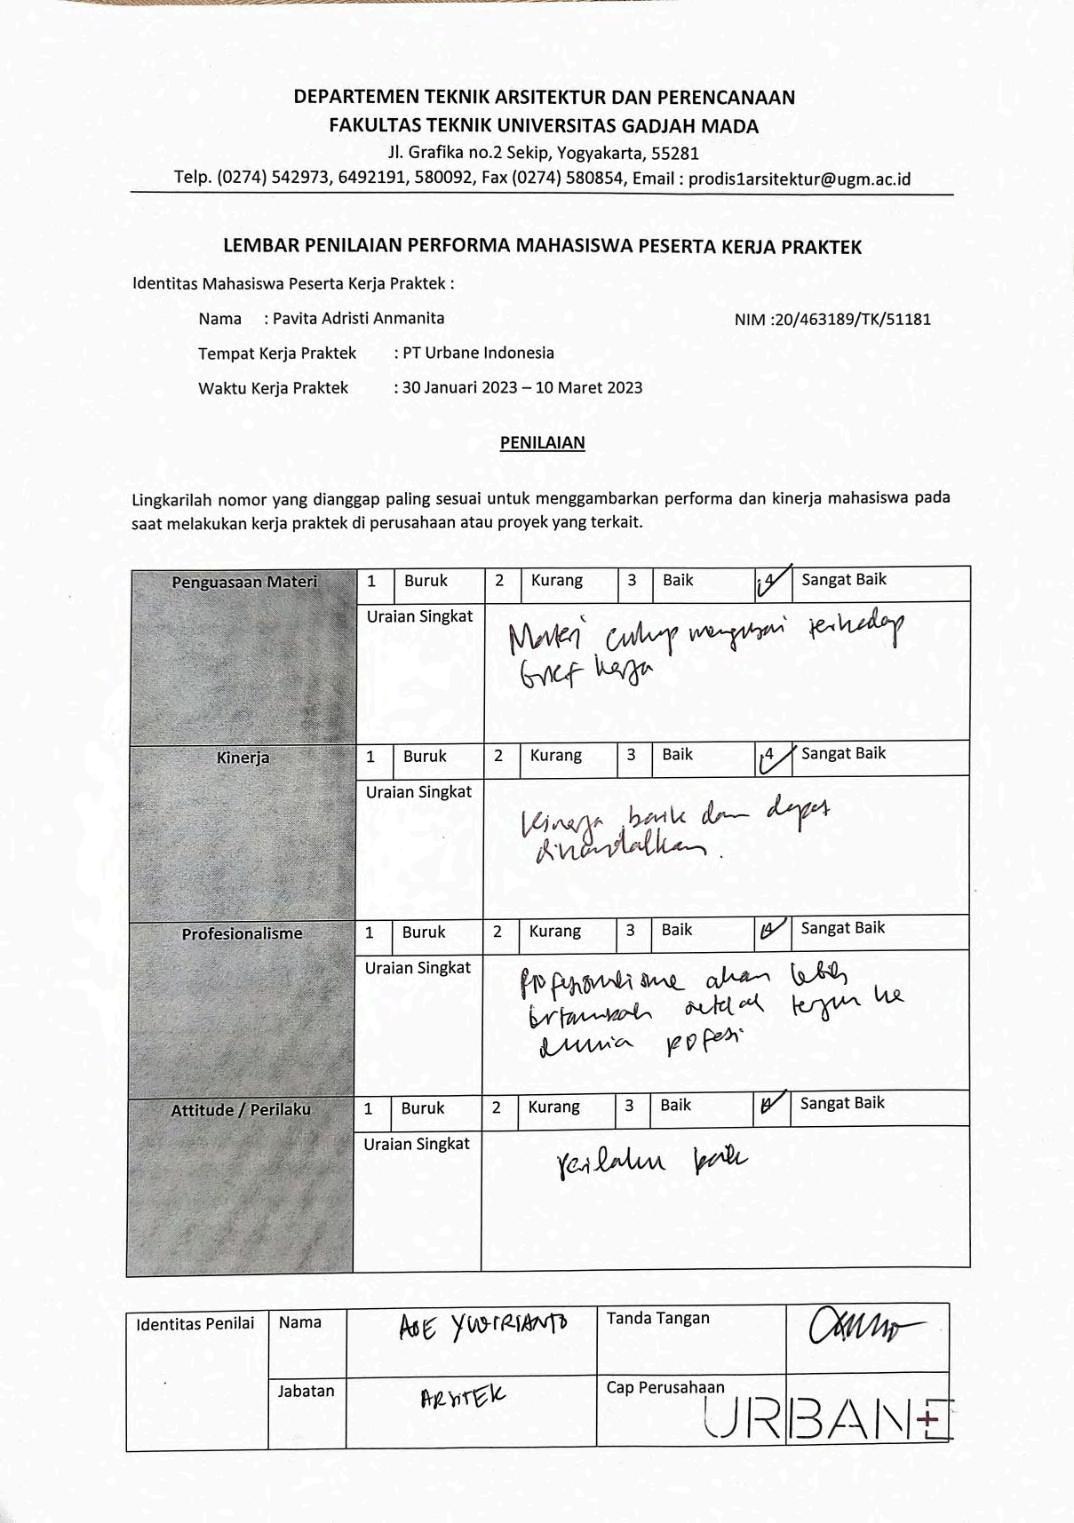 DEPARTEMEN TEKNIK ARSITEKTUR DAN PERENCANAAN
FAKULTAS TEKNIK UNIVERSITAS GADJAH MADA
Jl. Grafika no.2 Sekip, Yogyakarta, 55281
Telp. (0274) 542973, 6492191, 580092, Fax (0274) 580854, Email : prodis1arsitektur@ugm.ac.id
LEMBAR PENILAIAN PERFORMA MAHASISWA PESERTA KERJA PRAKTEK
Identitas Mahasiswa Peserta Kerja Praktek :
Nama : Pavita Adristi Anmanita NIM :20/463189/TK/51181
Tempat Kerja Praktek : PT Urbane Indonesia
Waktu Kerja Praktek : 30 Januari 2023 – 10 Maret 2023
PENILAIAN
Lingkarilah nomor yang dianggap paling sesuai untuk menggambarkan performa dan kinerja mahasiswa pada
saat melakukan kerja praktek di perusahaan atau proyek yang terkait.
Penguasaan Materi 1 Buruk 2 Kurang 3 Baik 4 Sangat Baik
Uraian Singkat
Materi cukup menguasai terhadap
brief kerja
Kinerja 1 Buruk 2 Kurang 3 Baik 4 Sangat Baik
Uraian Singkat
Kinerja baik dan dapat
diandalkan.
Profesionalisme 1 Buruk 2 Kurang 3 Baik 4 Sangat Baik
Uraian Singkat
Profesionalisme akan lebih
bertambah setelah terjun ke
dunia profesi
Attitude / Perilaku 1 Buruk 2 Kurang 3 Baik 4 Sangat Baik
Uraian Singkat
Perilaku baik
Identitas Penilai Nama ADE Tanda Tangan
Jabatan ARSITEK Cap Perusahaan
URBANE